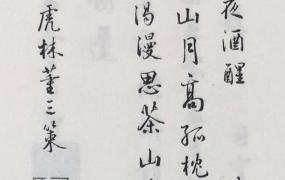 夜酒醒
山月高孤枕
渴漫思茶山
虎林董三策